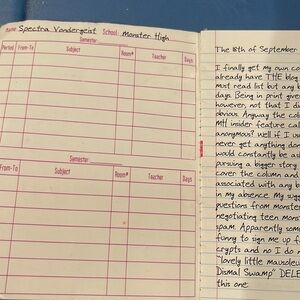 Name Spectra Vondergeist School Monster High
Semester
Period From-To Subject Room# Teacher Days
Semester
From-To Subject Room# Teacher Days
The 18th of September
I finally get my own co
already have THE blog
must read list but any b
days. Being in print give
however, not that I di
obvious. Anyway the col
MH insider feature call
anonymous? Well if I use
never get anything don
would constantly be as
pursuing a bigger story
cover the column and
associated with any b
in my absence. My sugg
questions from monster
negotiating teen mons
spam. Apparently some
funny to sign me up f
crypts and no I do n
"lovely little mausoleu
Dismal Swamp" DELE
this one